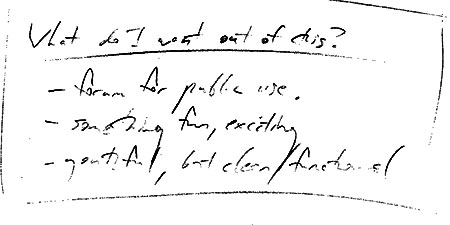 What do I want out of this?
- forum for public use.
- something fun, exciting
- youthful, but clean/functional